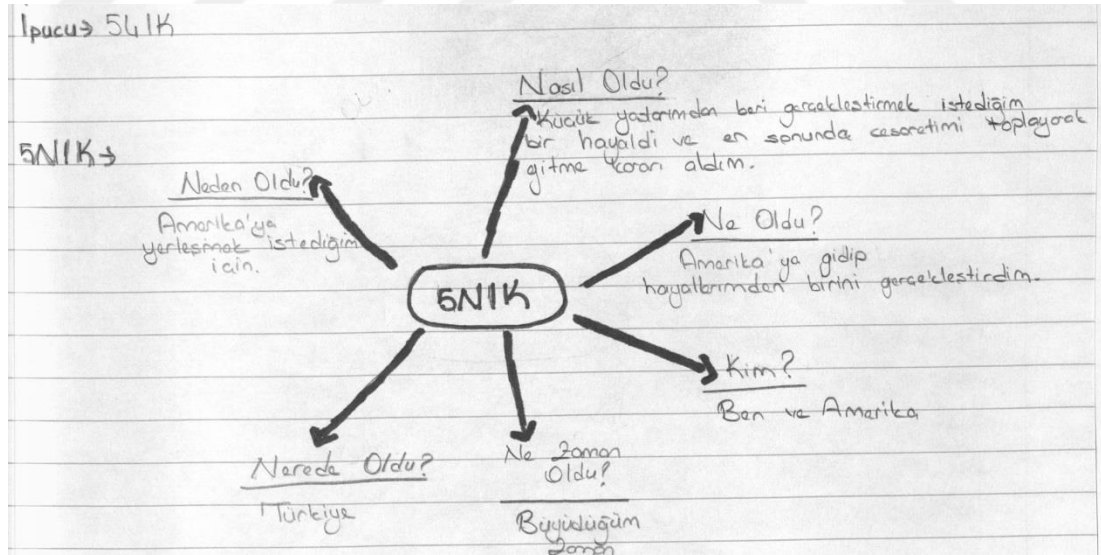 İpucu→ 5N1K
Nasıl Oldu?
Küçük yaşlarımdan beri gerçekleştirmek istediğim
bir hayaldi ve en sonunda cesaretimi toplayarak
gitme kararı aldım.
5N1K→
Neden Oldu?
Amerika'ya
yerleşmek istediğim
için.
Ne Oldu?
Amerika'ya gidip
hayallerimden birini gerçekleştirdim.
5N1K
Kim?
Ben ve Amerika
Nerede Oldu?
Türkiye
Ne Zaman
Oldu?
Büyüdüğüm
zaman